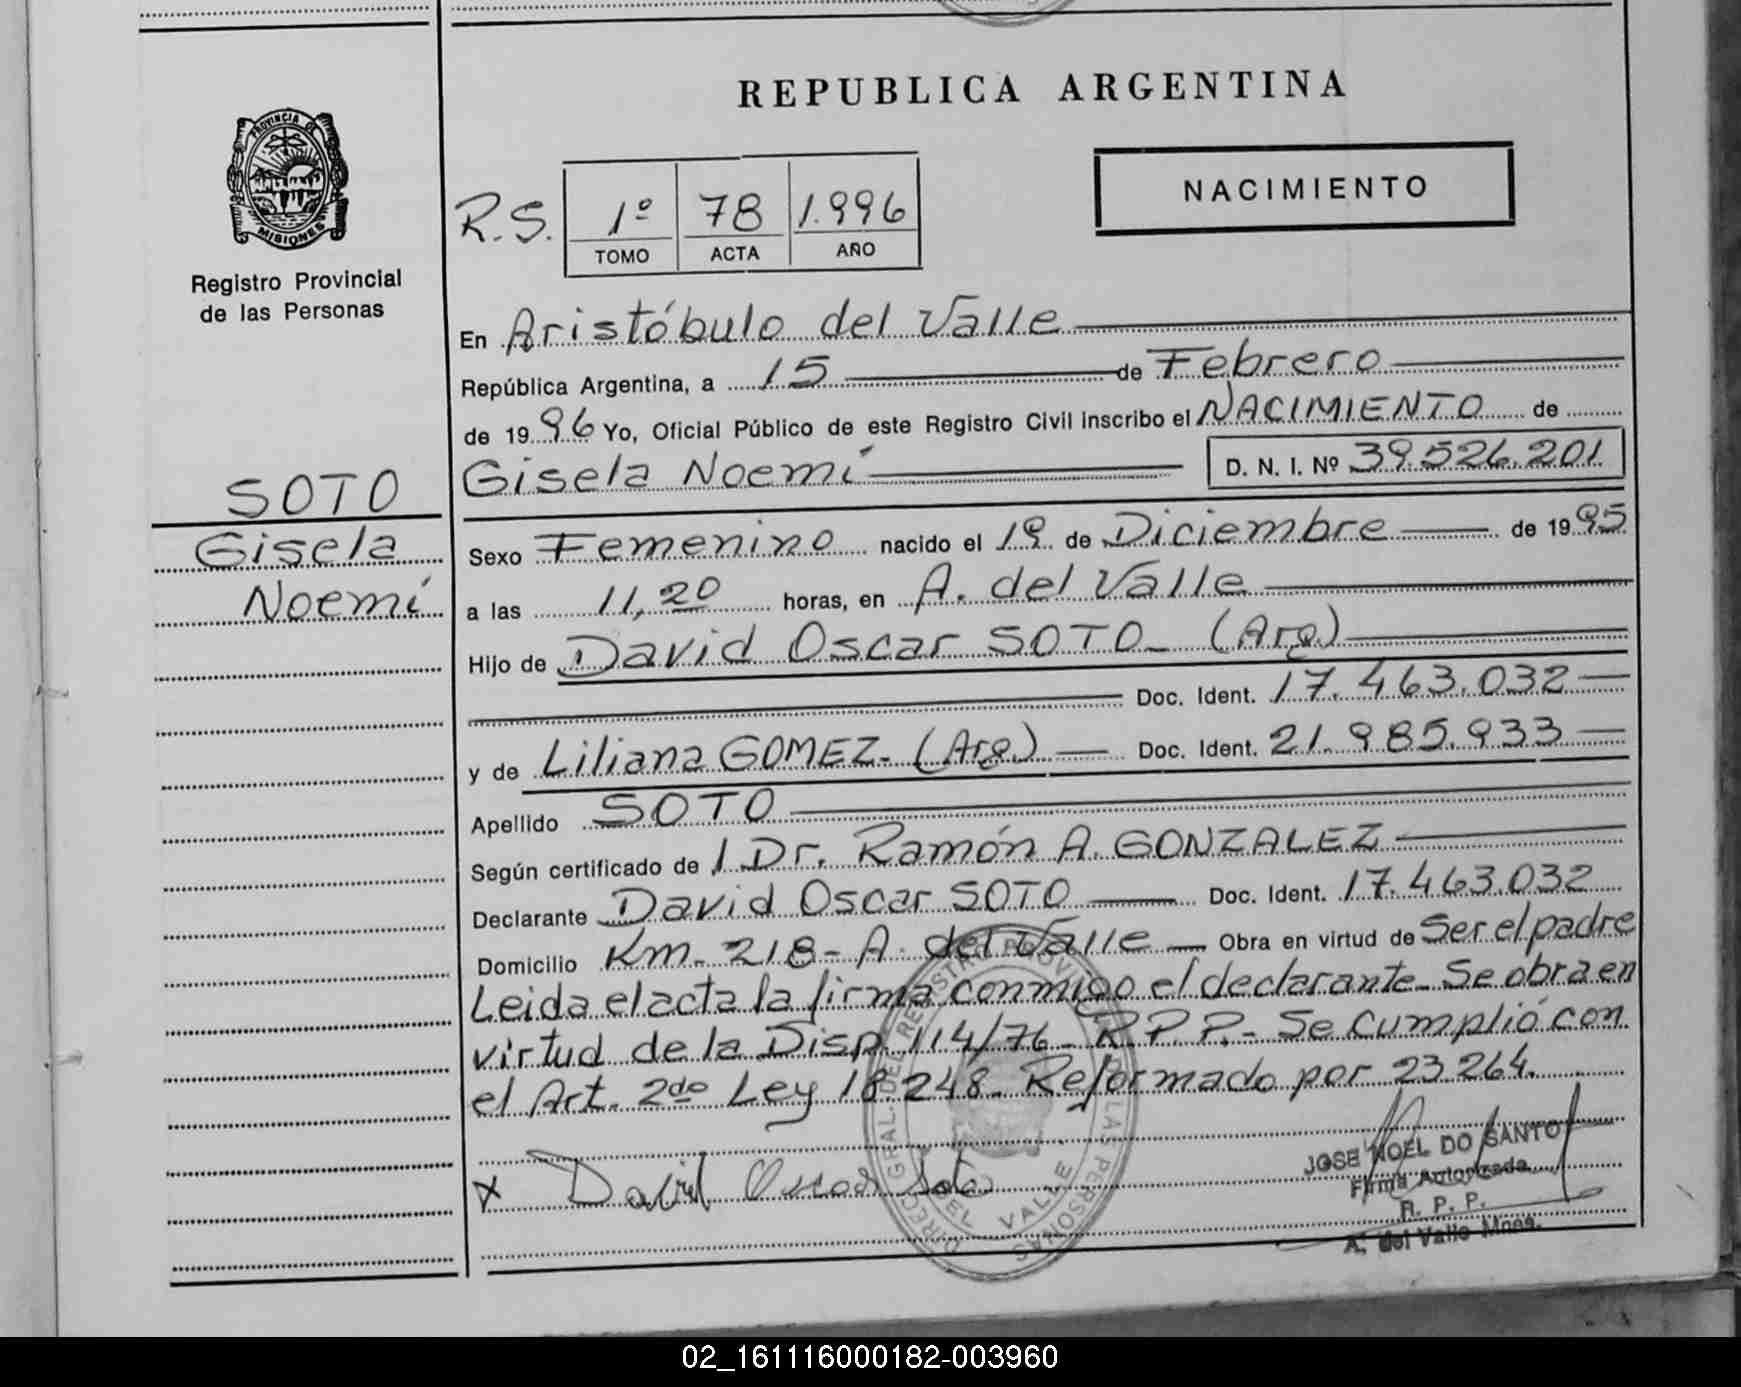 REPUBLICA ARGENTINA
PROVINCIA DE
MISIONES
Registro Provincial
de las Personas
R.S.
1º 78 1.996
TOMO ACTA AÑO
NACIMIENTO
En Aristóbulo del Valle
República Argentina, a 15 de Febrero
de 19 96 Yo, Oficial Público de este Registro Civil inscribo el NACIMIENTO de
Gisela Noemí D. N. I. Nº 39.526.201
SOTO
Gisela
Noemí
Sexo Femenino nacido el 19 de Diciembre de 19 95
a las 11,20 horas, en A. del Valle
Hijo de David Oscar SOTO_ (Arg)
Doc. Ident. 17.463.032
y de Liliana GOMEZ- (Arg) Doc. Ident. 21.985.933
Apellido SOTO
Según certificado de l Dr. Ramón A. GONZALEZ
Declarante David Oscar SOTO Doc. Ident. 17.463.032
Domicilio Km. 218- A. del Valle Obra en virtud de Ser el padre
Leida el acta la firma conmigo el declarante- Se obra en
virtud de la Disp. 114/76- R.P.P.- Se Cumplió con
el Art. 2do Ley 18.248- Reformado por 23264.
x David Oscar Soto
JOSE NOEL DO SANTO
Firma Autorizada
R. P. P.
A. del Valle Mnes.
DIRECC. GRAL. DEL REGISTRO PROVINCIAL DE LAS PERSONAS
DEL VALLE
02_161116000182-003960